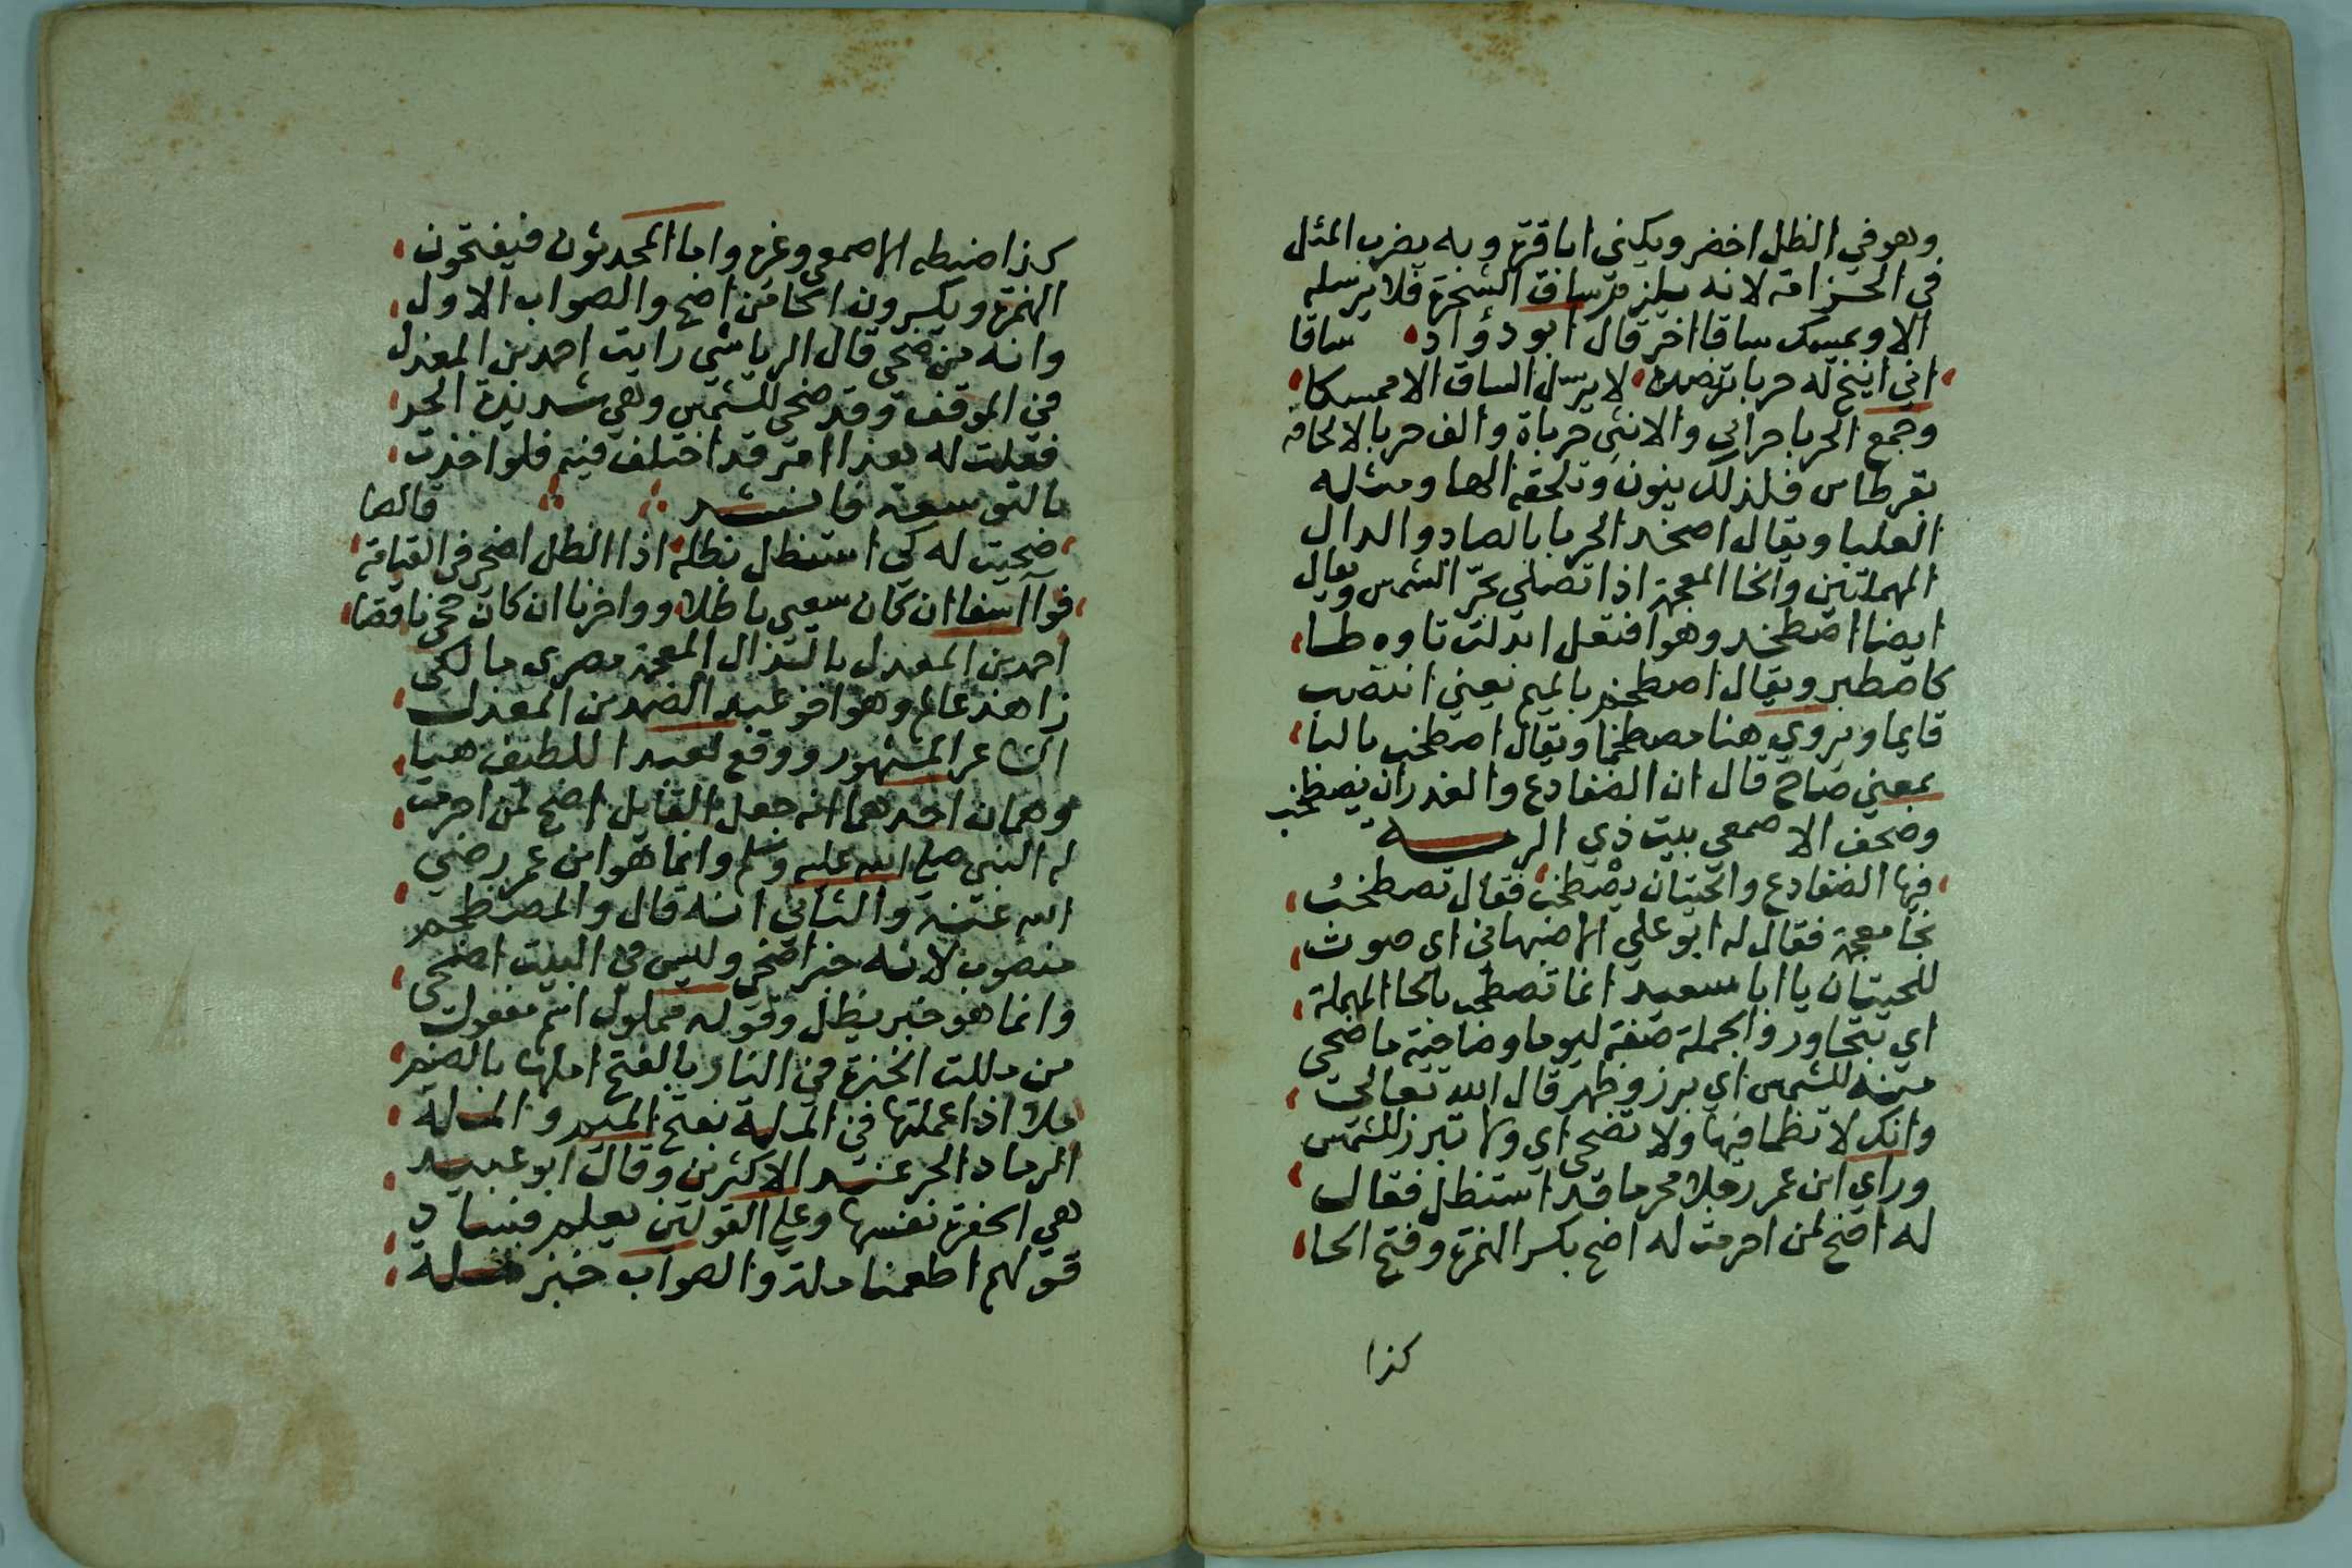 وهو في الظل اخضر ويكنى ابا قرة وبه يضرب المثل
في الحزامة لانه يلزم ساق الشجرة فلا يرسله
الا ويمسك ساقا اخر قال ابو دؤاد ساقا
اني اتيح له حربا تنضبة لا يرسل الساق الا ممسكا
وجمع الحربا حرابي والانثى حرباة والف حربا لالحاقه
بقرطاس فلذلك ينون وتلحقه الها ومثله
العلبا ويقال اصخد الحربا بالصاد والدال
المهملتين والخا المعجمة اذا تصلى بحرّ الشمس ويقال
ايضا اصطخد وهو افتعل ابدلت تاوه طا
كاصطبر ويقال اصطخم بالميم يعني انتصب
قايما ويروي هنا مصطخما ويقال اصطخب بالبا
بمعني صاح قال ان الضفادع والغدران يصطخب
وصحف الاصمعي بيت ذي الرمة
فيها الضفادع والحيتان يصطخب فقال تصطخب
بخا معجمة فقال له ابو علي الاصبهاني اي صوت
للحيتان يا ابا سعيد انما تصطحب بالحا المهملة
اي تتجاور والجملة صفة ليوما وضاحية ما ضحى
منه للشمس اي برز وظهر قال الله تعالى
وانك لا تظما فيها ولا تضحى اي ولا تبرز للشمس
وراي ابن عمر رجلا محرما قد استظل فقال
له اضح لمن احرمت له اضح بكسر الهمزة وفتح الحا
كذا
كذا ضبطه الاصمعي وغيره واما المحدثون فيفتحون
الهمزة ويكسرون الحا من اضح والصواب الاول
وانه من ضحي قال الرياشي رايت احمد بن المعذل
في الموقف وقد ضحى للشمس وهي شديدة الحر
فقلت له هذا امر قد اختلف فيه فلو اخذت
بالتوسعة فانشد قالصا
ضحيت له كي استظل بظله اذا الظل اضحى في القيامة
فوا آسفا ان كان سعيي باطلا وواحزنا ان كان حجي ناقصا
احمد بن المعذل بالذال المعجمة بصري مالكي
زاهد عالم وهو اخو عبد الصمد بن المعذل
الشاعر المشهور ووقع لعبد اللطيف هنا
وهمان احدهما انه جعل القايل اضح لمن احرمت
له النبي صلي الله عليه وسلم وانما هو ابن عمر رضي
الله عنه والثاني انه قال والمصطخم
منصوب لانه خبر اضحى وليس في البيت اضحى
وانما هو خبر يظل وقوله مملول اسم مفعول
من مللت الخبزة في النار بالفتح املها بالضم
ملا اذا عملتها في الملة بفتح الميم والملة
الرماد الحر عند الاكثرين وقال ابو عبيد
هي الحفرة نفسها وعلي القولين يعلم فساد
قولهم اطعمنا ملة والصواب خبز ملة